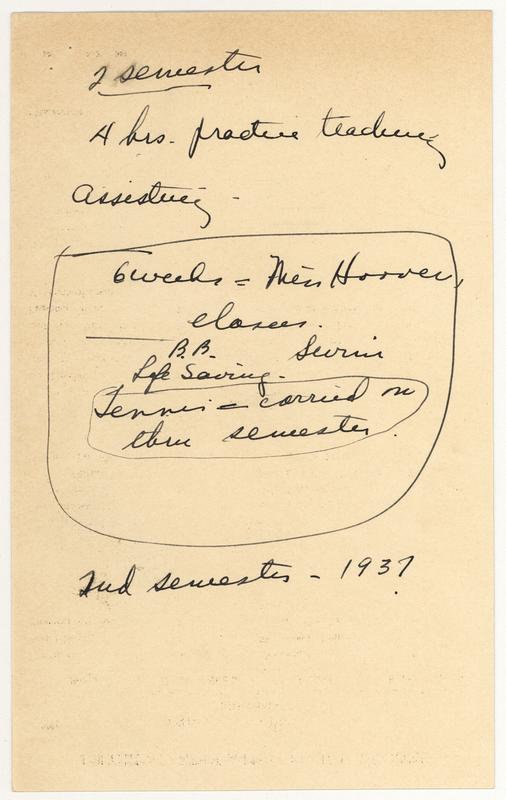 2 semester
4 hrs. practice teaching
assisting -
6 weeks = Miss Hoover,
classes.
B.B. Swim
Life Saving -
Tennis = carried on
thru semester.
2nd semester - 1937